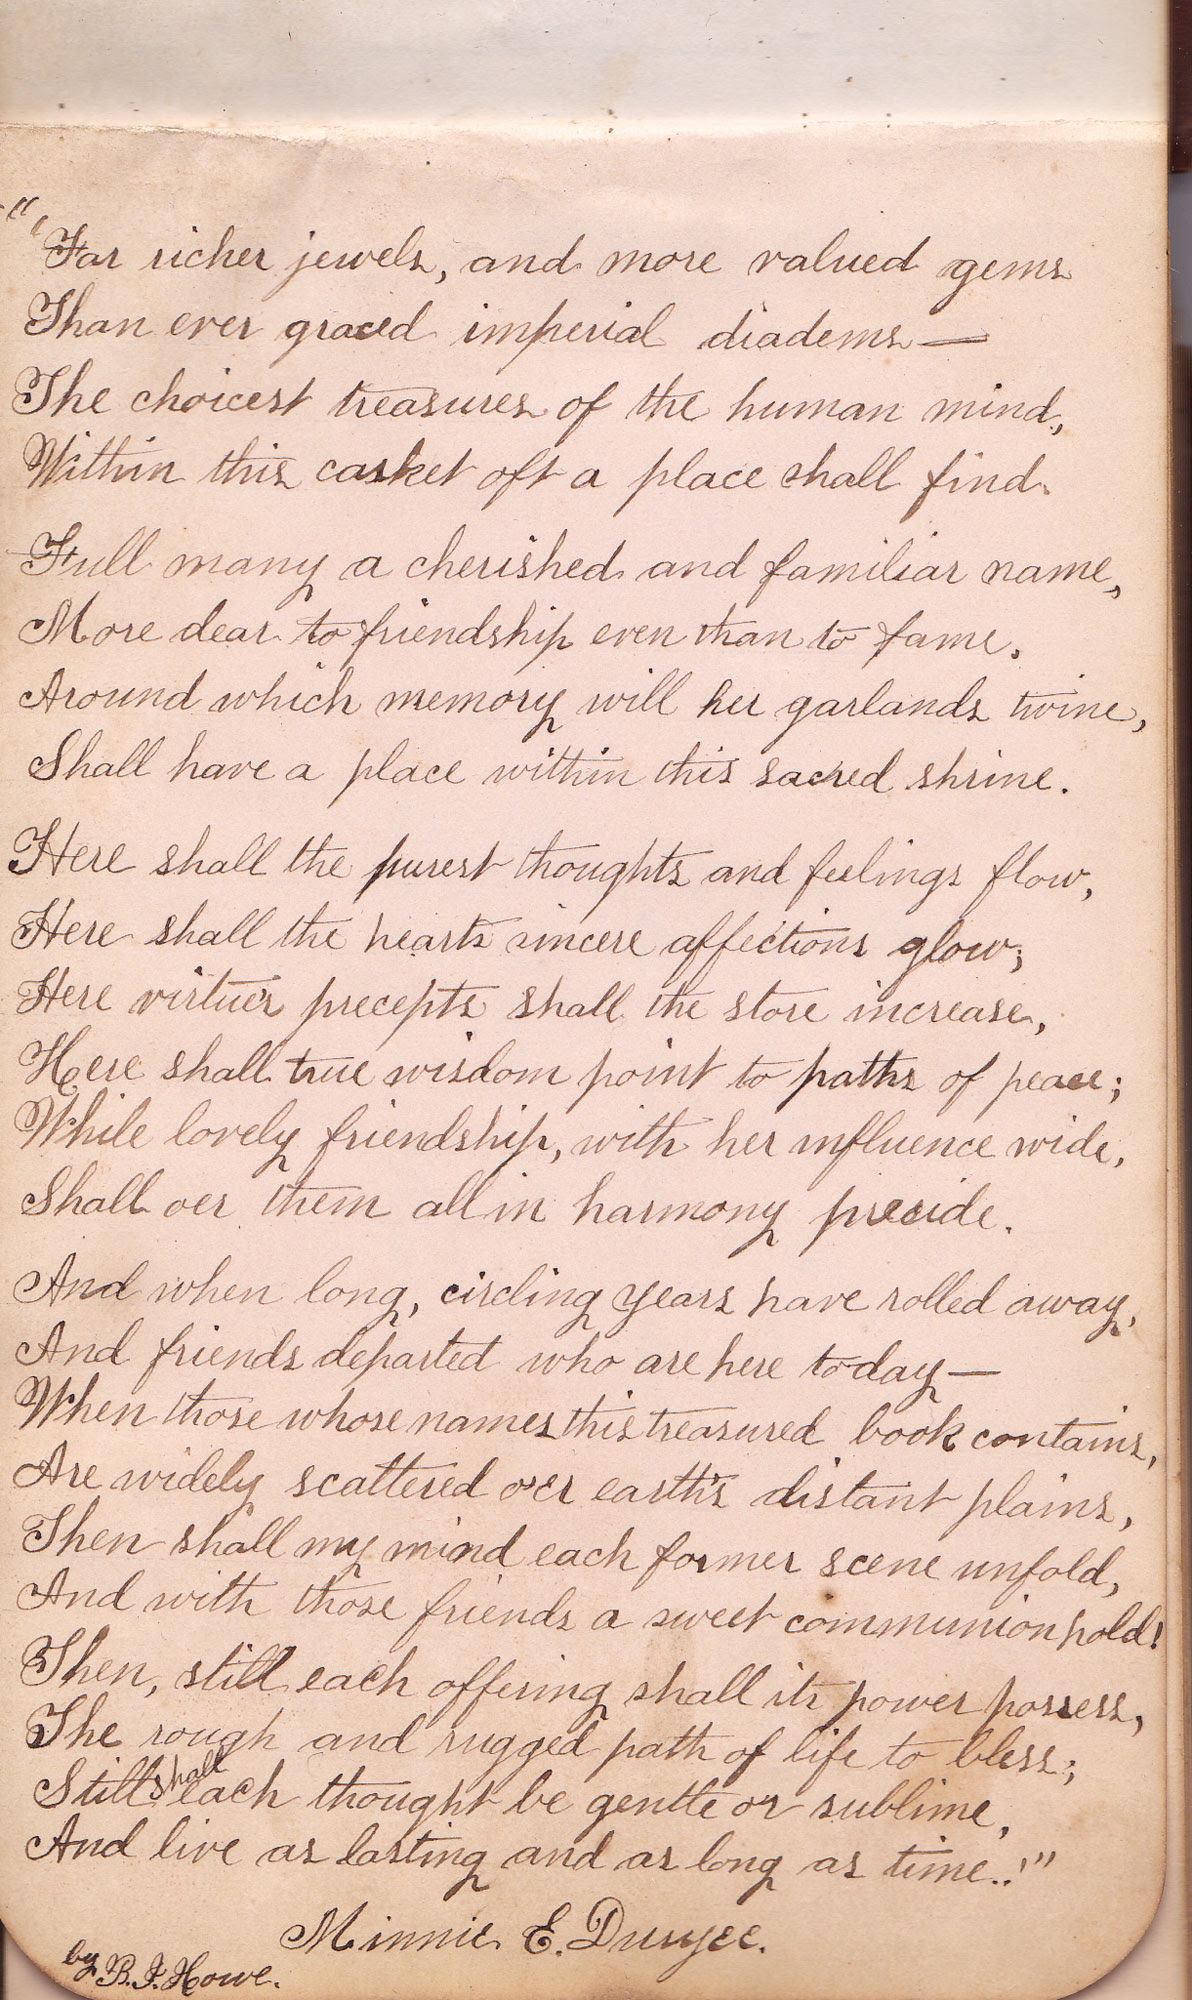 "Far richer jewels, and more valued gems
Than ever graced imperial diadems—
The choicest treasures of the human mind,
Within this casket oft a place shall find.
Full many a cherished and familiar name,
More dear to friendship even than to fame.
Around which memory will her garlands twine,
Shall have a place within this sacred shrine.
Here shall the purest thoughts and feelings flow,
Here shall the hearts sincere affections glow;
Here virtue's precepts shall the store increase,
Here shall true wisdom point to paths of peace;
While lovely friendship, with her influence wide,
Shall oer them all in harmony preside.
And when long, circling years have rolled away,
And friends departed who are here today—
When those whose names this treasured book contains,
Are widely scattered o'er earth's distant plains,
Then shall my mind each former scene unfold,
And with those friends a sweet communion hold!
Then, still each offering shall its power possess,
The rough and rugged path of life to bless;
Still shall each thought be gentle or sublime,
And live as lasting and as long as time..!"
Minnie E. Duryee.
by B.F. Howe.